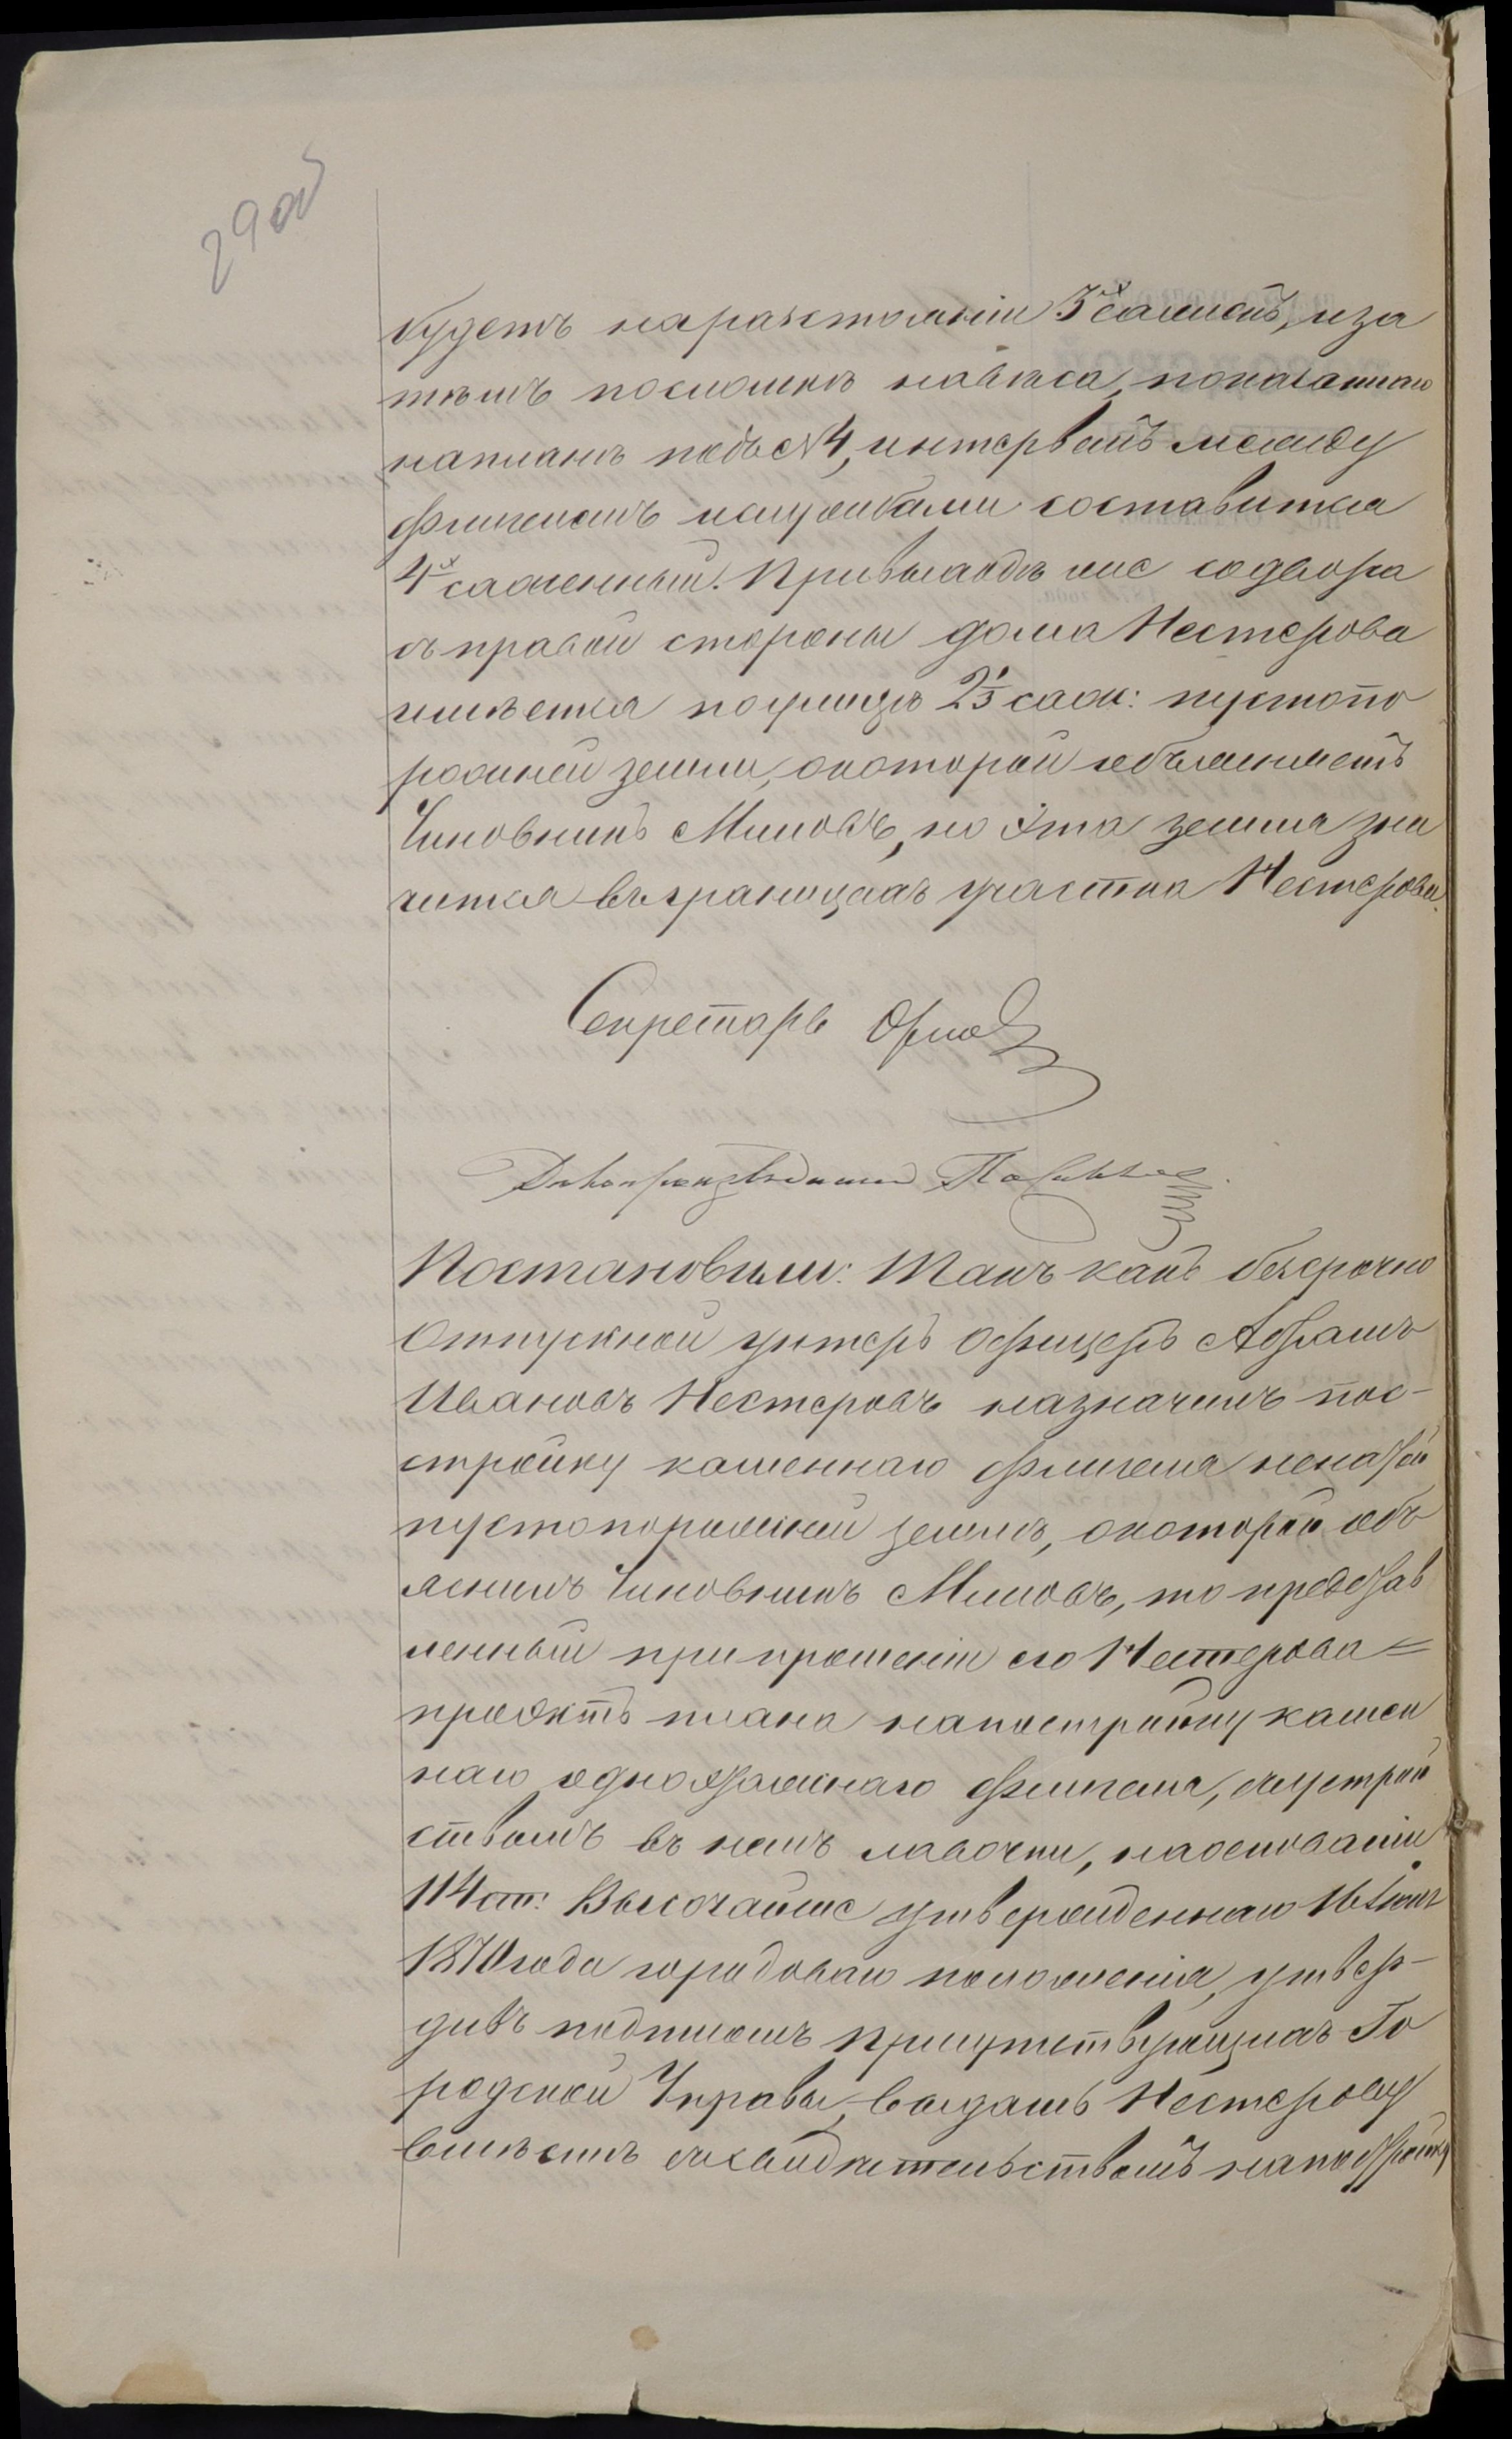 29 об
будетъ наразстояніи 3х саженъ, иза
тѣмъ посломкѣ навѣса, показаннаго
напланѣ подъ № 4, интервалъ между
флигелемъ ислужбами составится
4х саженный. При выѣздѣ же содвора
съ правой стороны дома Нестерова
имѣется поулицѣ 2 1/3 саж: пустопо
рожней земли, окоторой объясняетъ
Чиновникъ Миловъ, но эта земля зна
чится въ границахъ участка Нестерова.
Секретарь Орлов
Дѣлопроизводитель
Постановили: Такъ какъ безсрочно
Отпускной унтеръ Офицеръ Абрамъ
Ивановъ Нестеровъ назначилъ пос-
тройку каменнаго флигеля ненатой
пустопорожней землѣ, окоторой объ
яснилъ Чиновникъ Миловъ, то представ
ленный при прошеніи его Нестерова =
проэктъ плана напостройку камен
наго одноэтажнаго флигеля, съустрой
ствомъ въ немъ лавочки, наоснованіи
114 ст: Высочайше утвержденнаго 16 Іюня
1870 года городоваго положенія, утвер-
дивъ подписомъ присутствующихъ Го
родской Управы, выдать Нестерову
вмѣстѣ съ свидѣтельствомъ напостройку